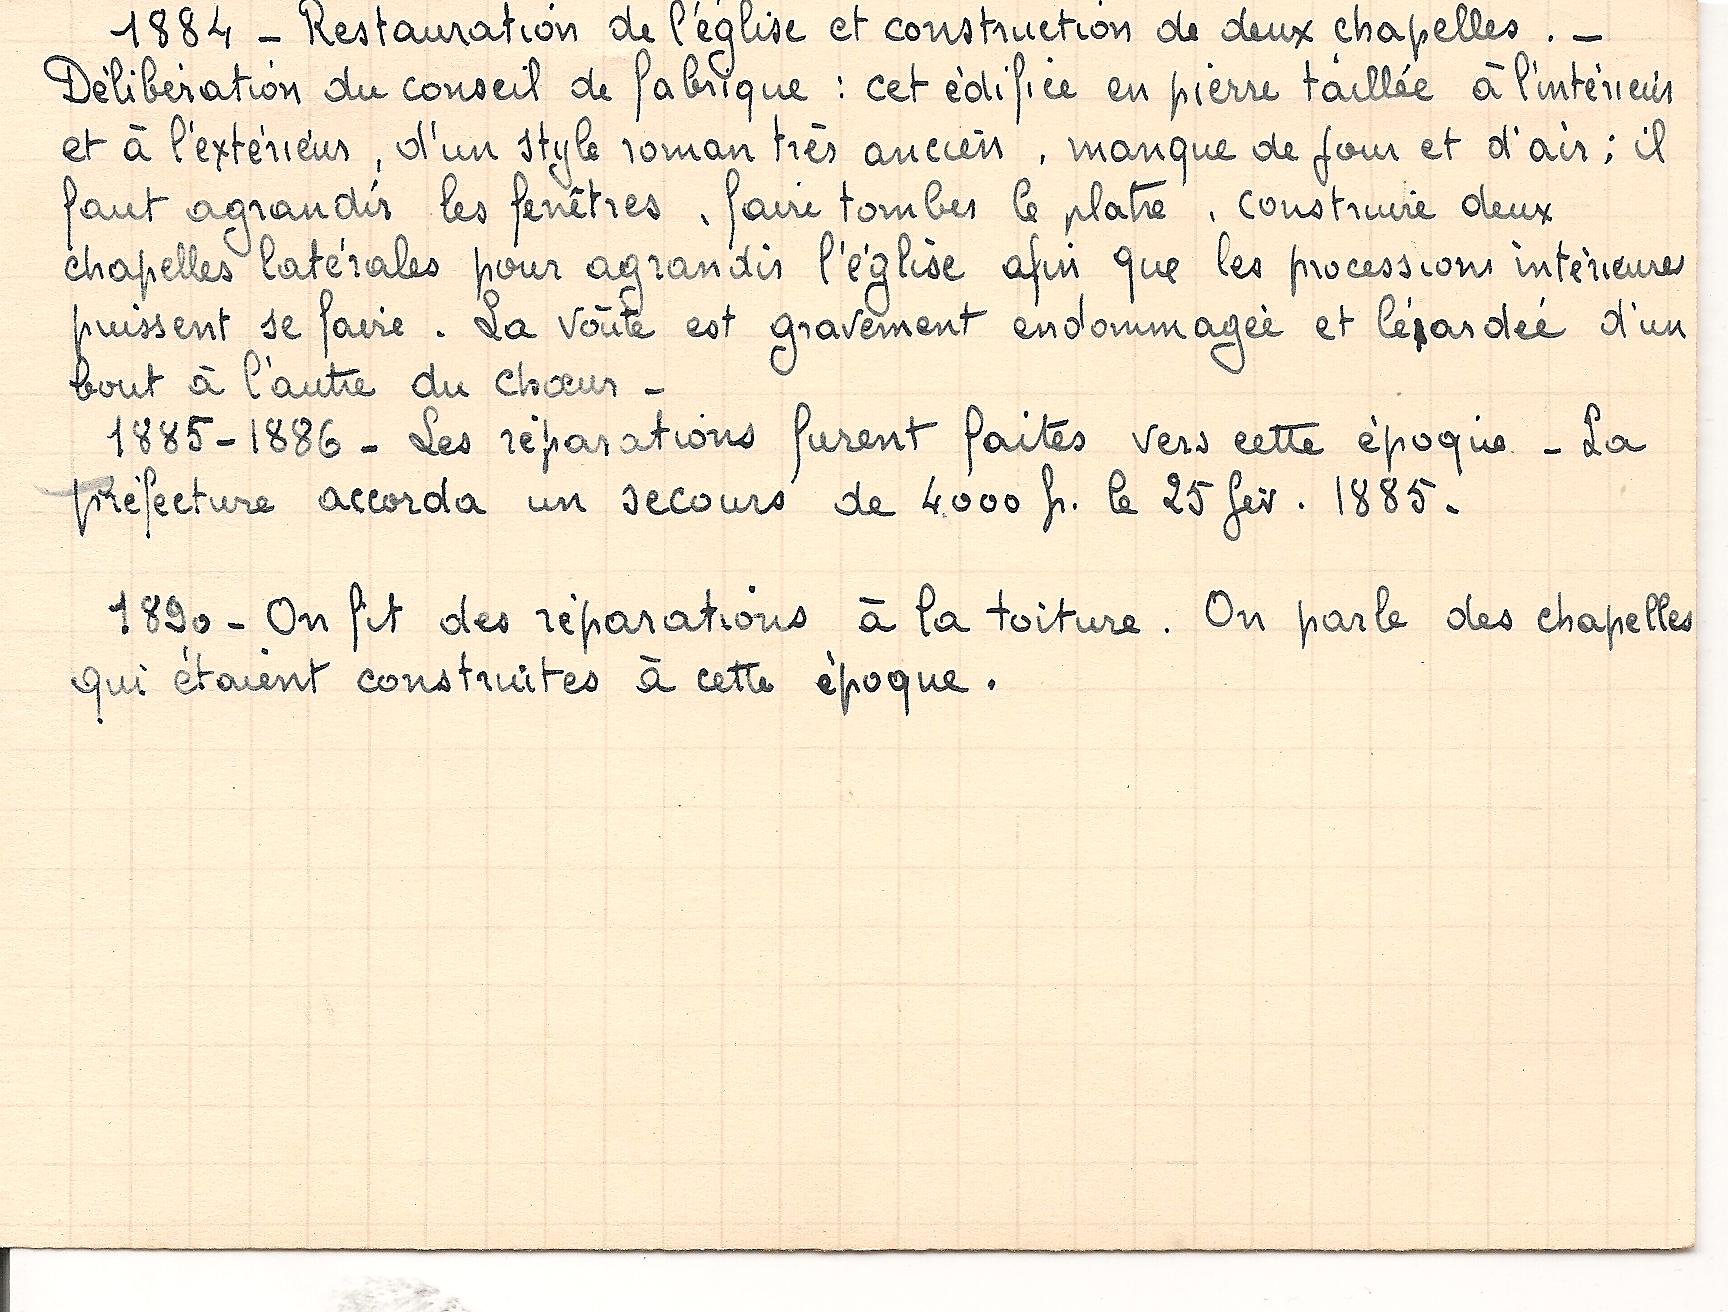 1884 – Restauration de l'église et construction de deux chapelles. –
Délibération du conseil de fabrique : cet édifice en pierre taillée à l'intérieur
et à l'extérieur, d'un style roman très ancien, manque de jour et d'air ; il
faut agrandir les fenêtres, faire tomber le platre, construire deux
chapelles latérales pour agrandir l'église afin que les processions intérieures
puissent se faire. La voûte est gravement endommagée et lézardée d'un
bout à l'autre du chœur –
1885-1886 – Les réparations furent faites vers cette époque – La
préfecture accorda un secours de 4000 fr. le 25 fév. 1885.
1890 – On fit des réparations à la toiture. On parle des chapelles
qui étaient construites à cette époque.